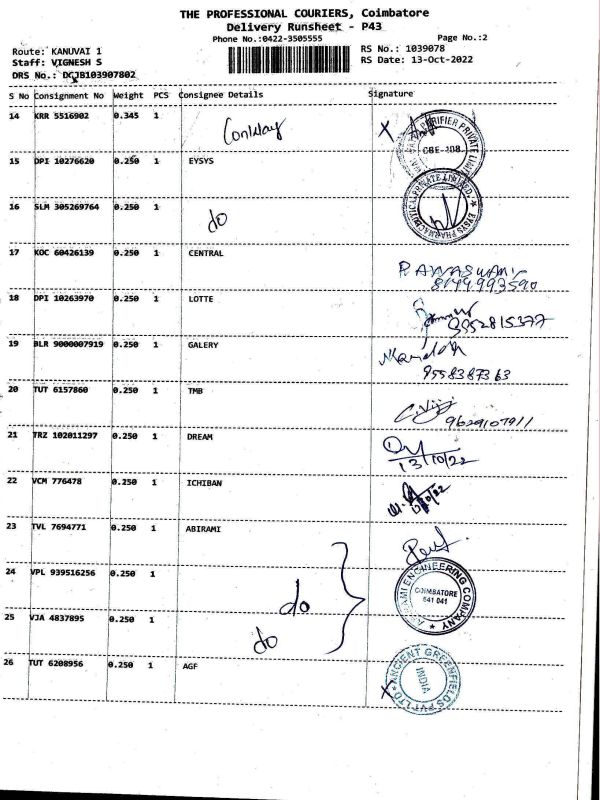 THE PROFESSIONAL COURIERS, Coimbatore
Delivery Runsheet - P43
Phone No.:0422-3505555
Page No.:2
Route: KANUVAI 1
RS No.: 1039078
Staff: VIGNESH S
RS Date: 13-Oct-2022
DRS No.: DGJB103907802
S No Consignment No Weight PCS Consignee Details Signature
14 KRR 5516902 0.345 1
CBE-108
15 DPI 10276620 0.250 1 EYSYS
EYSYS PHARMACEUTICAL PRIVATE LIMITED
16 SLM 305269764 0.250 1 do
17 KOC 60426139 0.250 1 CENTRAL
18 DPI 10263970 0.250 1 LOTTE
9952815377
19 BLR 9000007919 0.250 1 GALERY
9558387363
20 TUT 6157860 0.250 1 TMB
9629107911
21 TRZ 102011297 0.250 1 DREAM
13/10/22
22 VCM 776478 0.250 1 ICHIBAN
23 TVL 7694771 0.250 1 ABIRAMI
24 VPL 939516256 0.250 1 do
ABIRAMI ENGINEERING COMPANY
COIMBATORE
641 041
25 VJA 4837895 0.250 1 do
26 TUT 6208956 0.250 1 AGF
ANCIENT GREENFIELDS PVT LTD
INDIA